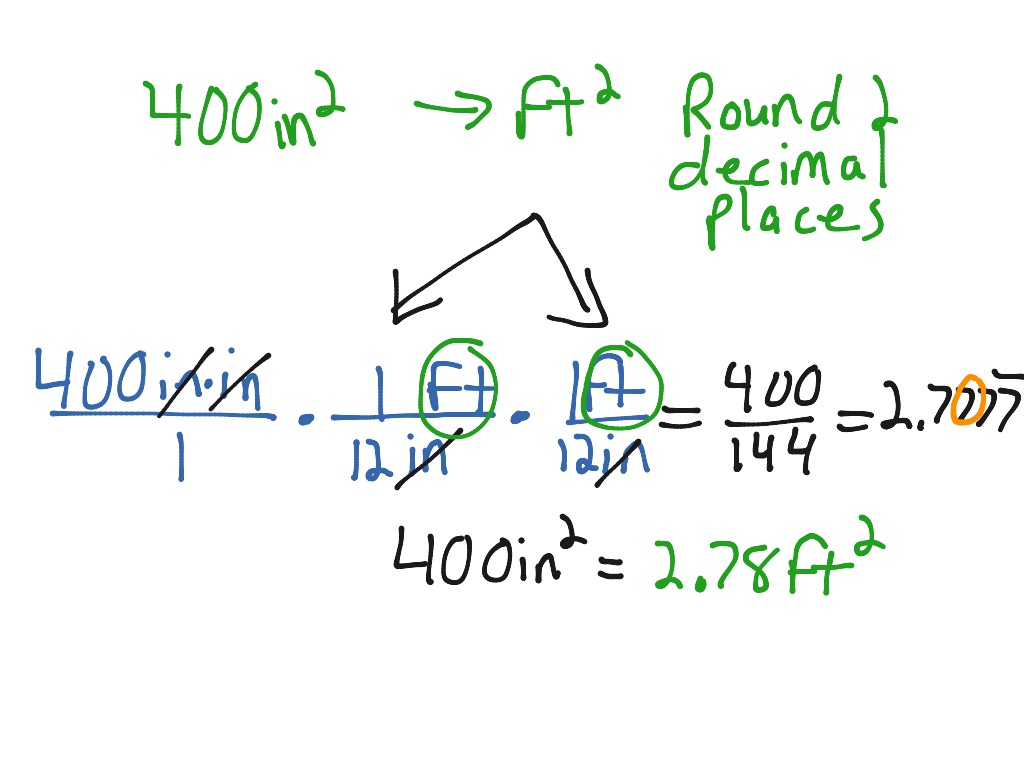 400in² → Ft² Round 2
decimal
places
400in·in/1 · 1Ft/12in · 1Ft/12in = 400/144 = 2.7777
400in² = 2.78Ft²